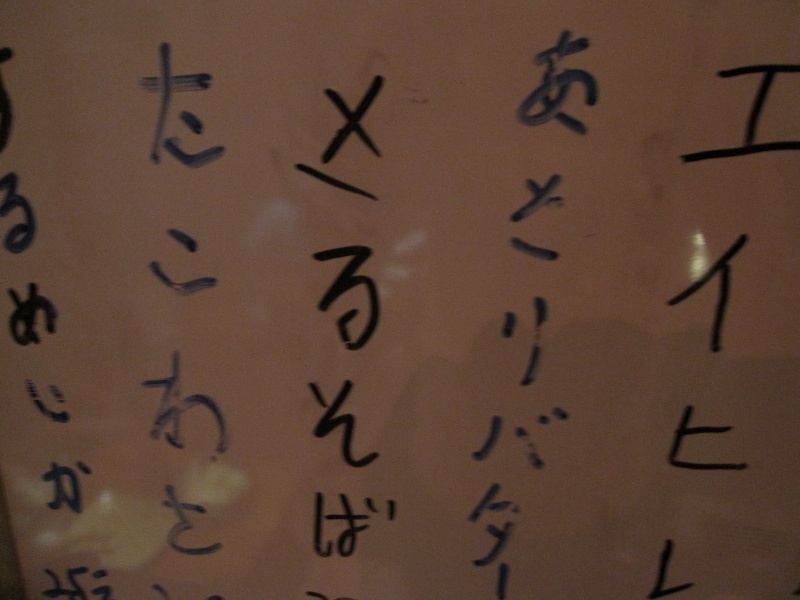 エイヒレ
あさりバター
ざるそば
たこわさ
するめいか